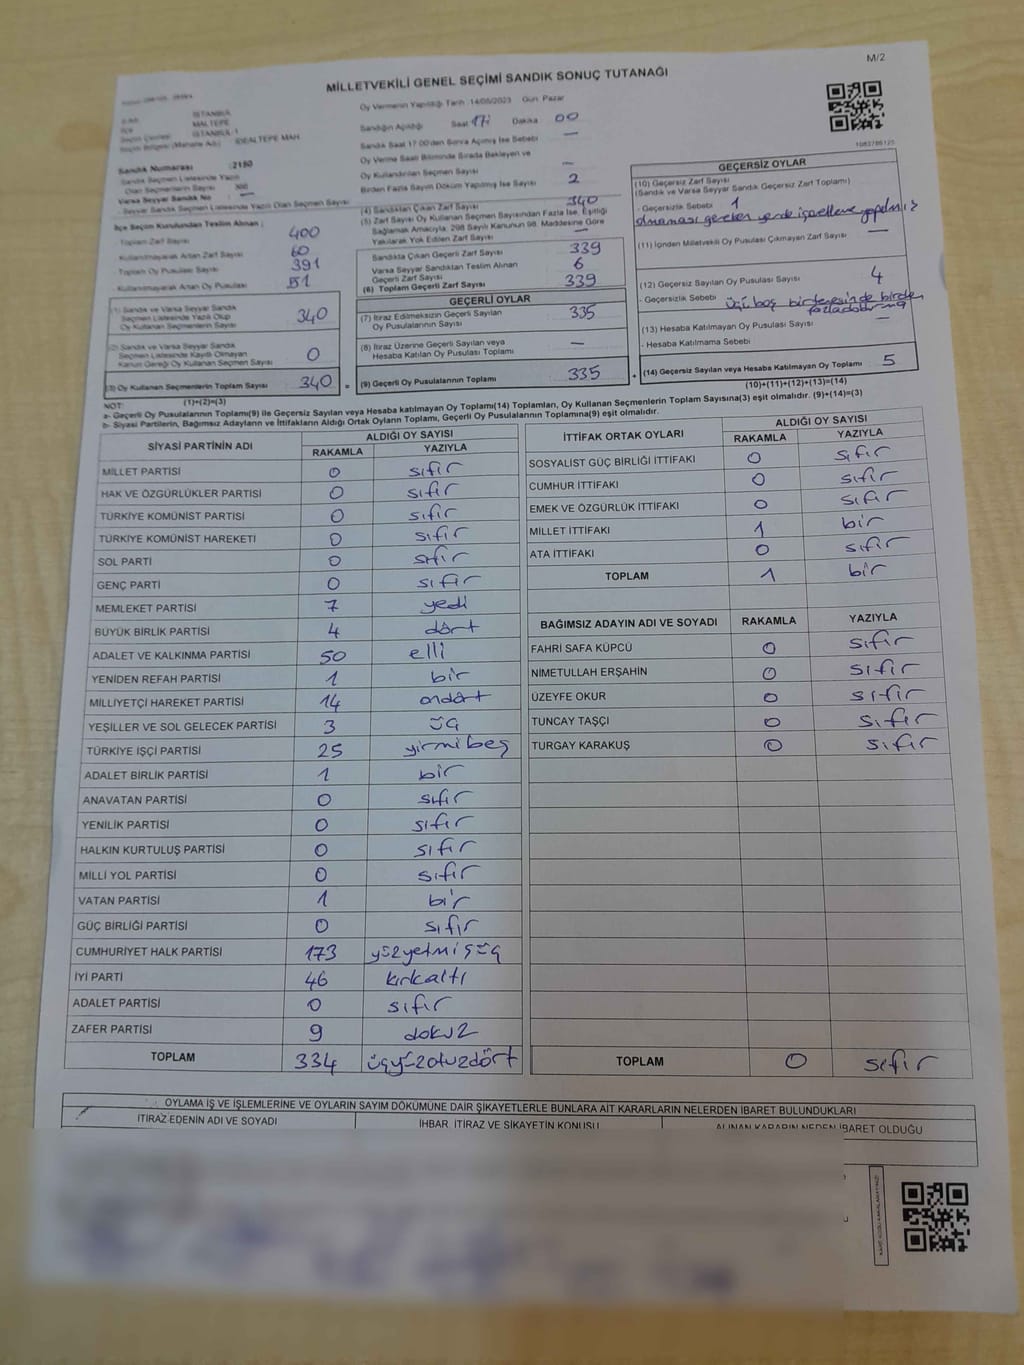 M/2
MİLLETVEKİLİ GENEL SEÇİMİ SANDIK SONUÇ TUTANAĞI
Oy Vermenin Yapıldığı Tarih :14/05/2023 Gün: Pazar
İSTANBUL
MALTEPE
İSTANBUL 1
İDEALTEPE MAH.
Sandığın Açıldığı Saat 17: Dakika 00
Sandık Saat 17.00'den Sonra Açılmış İse Sebebi —
Oy Verme Saati Bitiminde Sırada Bekleyen ve
Oy Kullandırılan Seçmen Sayısı —
Birden Fazla Sayım Döküm Yapılmış İse Sayısı 2
Sandık Numarası :2150
Sandık Seçmen Listesinde Yazılı
Olan Seçmenlerin Sayısı
Varsa Seyyar Sandık No —
Seyyar Sandık Seçmen Listesinde Yazılı Olan Seçmen Sayısı
İlçe Seçim Kurulundan Teslim Alınan ;
- Toplam Zarf Sayısı 400
Kullanılmayarak Artan Zarf Sayısı 60
- Toplam Oy Pusulası Sayısı 391
Kullanılmayarak Artan Oy Pusulası 51
(1) Sandık ve Varsa Seyyar Sandık
Seçmen Listesinde Yazılı Olup
Oy Kullanan Seçmenlerin Sayısı 340
(2) Sandık ve Varsa Seyyar Sandık
Seçmen Listesinde Kayıtlı Olmayan
Kanun Gereği Oy Kullanan Seçmen Sayısı 0
(3) Oy Kullanan Seçmenlerin Toplam Sayısı 340
(1)+(2)=(3)
(4) Sandıktan Çıkan Zarf Sayısı 340
(5) Zarf Sayısı Oy Kullanan Seçmen Sayısından Fazla İse, Eşitliği
Sağlamak Amacıyla, 298 Sayılı Kanunun 98. Maddesine Göre
Yakılarak Yok Edilen Zarf Sayısı —
Sandıkta Çıkan Geçerli Zarf Sayısı 339
Varsa Seyyar Sandıktan Teslim Alınan
Geçerli Zarf Sayısı 6
(6) Toplam Geçerli Zarf Sayısı 339
GEÇERLİ OYLAR
(7) İtiraz Edilmeksizin Geçerli Sayılan
Oy Pusulalarının Sayısı 335
(8) İtiraz Üzerine Geçerli Sayılan veya
Hesaba Katılan Oy Pusulası Toplamı —
= (9) Geçerli Oy Pusulalarının Toplamı 335
1083786125
GEÇERSİZ OYLAR
(10) Geçersiz Zarf Sayısı
(Sandık ve Varsa Seyyar Sandık Geçersiz Zarf Toplamı)
- Geçersizlik Sebebi 1
olmaması gereken yerde işaretleme yapılmış
(11) İçinden Milletvekili Oy Pusulası Çıkmayan Zarf Sayısı —
(12) Geçersiz Sayılan Oy Pusulası Sayısı 4
- Geçersizlik Sebebi üçü boş birtanesinde birden
(13) Hesaba Katılmayan Oy Pusulası Sayısı —
- Hesaba Katılmama Sebebi
+ (14) Geçersiz Sayılan veya Hesaba Katılmayan Oy Toplamı 5
(10)+(11)+(12)+(13)=(14)
NOT:
a- Geçerli Oy Pusulalarının Toplamı(9) ile Geçersiz Sayılan veya Hesaba katılmayan Oy Toplamı(14) Toplamları, Oy Kullanan Seçmenlerin Toplam Sayısına(3) eşit olmalıdır. (9)+(14)=(3)
b- Siyasi Partilerin, Bağımsız Adayların ve İttifakların Aldığı Ortak Oyların Toplamı, Geçerli Oy Pusulalarının Toplamına(9) eşit olmalıdır.
SİYASİ PARTİNİN ADI ALDIĞI OY SAYISI
RAKAMLA YAZIYLA
MİLLET PARTİSİ 0 sıfır
HAK VE ÖZGÜRLÜKLER PARTİSİ 0 sıfır
TÜRKİYE KOMÜNİST PARTİSİ 0 sıfır
TÜRKİYE KOMÜNİST HAREKETİ 0 sıfır
SOL PARTİ 0 sıfır
GENÇ PARTİ 0 sıfır
MEMLEKET PARTİSİ 7 yedi
BÜYÜK BİRLİK PARTİSİ 4 dört
ADALET VE KALKINMA PARTİSİ 50 elli
YENİDEN REFAH PARTİSİ 1 bir
MİLLİYETÇİ HAREKET PARTİSİ 14 ondört
YEŞİLLER VE SOL GELECEK PARTİSİ 3 üç
TÜRKİYE İŞÇİ PARTİSİ 25 yirmibeş
ADALET BİRLİK PARTİSİ 1 bir
ANAVATAN PARTİSİ 0 sıfır
YENİLİK PARTİSİ 0 sıfır
HALKIN KURTULUŞ PARTİSİ 0 sıfır
MİLLİ YOL PARTİSİ 0 sıfır
VATAN PARTİSİ 1 bir
GÜÇ BİRLİĞİ PARTİSİ 0 sıfır
CUMHURİYET HALK PARTİSİ 173 yüzyetmişüç
İYİ PARTİ 46 kırkaltı
ADALET PARTİSİ 0 sıfır
ZAFER PARTİSİ 9 dokuz
TOPLAM 334 üçyüzotuzdört
İTTİFAK ORTAK OYLARI ALDIĞI OY SAYISI
RAKAMLA YAZIYLA
SOSYALİST GÜÇ BİRLİĞİ İTTİFAKI 0 sıfır
CUMHUR İTTİFAKI 0 sıfır
EMEK VE ÖZGÜRLÜK İTTİFAKI 0 sıfır
MİLLET İTTİFAKI 1 bir
ATA İTTİFAKI 0 sıfır
TOPLAM 1 bir
BAĞIMSIZ ADAYIN ADI VE SOYADI RAKAMLA YAZIYLA
FAHRİ SAFA KÜPCÜ 0 sıfır
NİMETULLAH ERŞAHİN 0 sıfır
ÜZEYFE OKUR 0 sıfır
TUNCAY TAŞÇI 0 sıfır
TURGAY KARAKUŞ 0 sıfır
TOPLAM 0 sıfır
OYLAMA İŞ VE İŞLEMLERİNE VE OYLARIN SAYIM DÖKÜMÜNE DAİR ŞİKAYETLERLE BUNLARA AİT KARARLARIN NELERDEN İBARET BULUNDUKLARI
İTİRAZ EDENİN ADI VE SOYADI İHBAR, İTİRAZ VE ŞİKAYETİN KONUSU ALINAN KARARIN NEDEN İBARET OLDUĞU